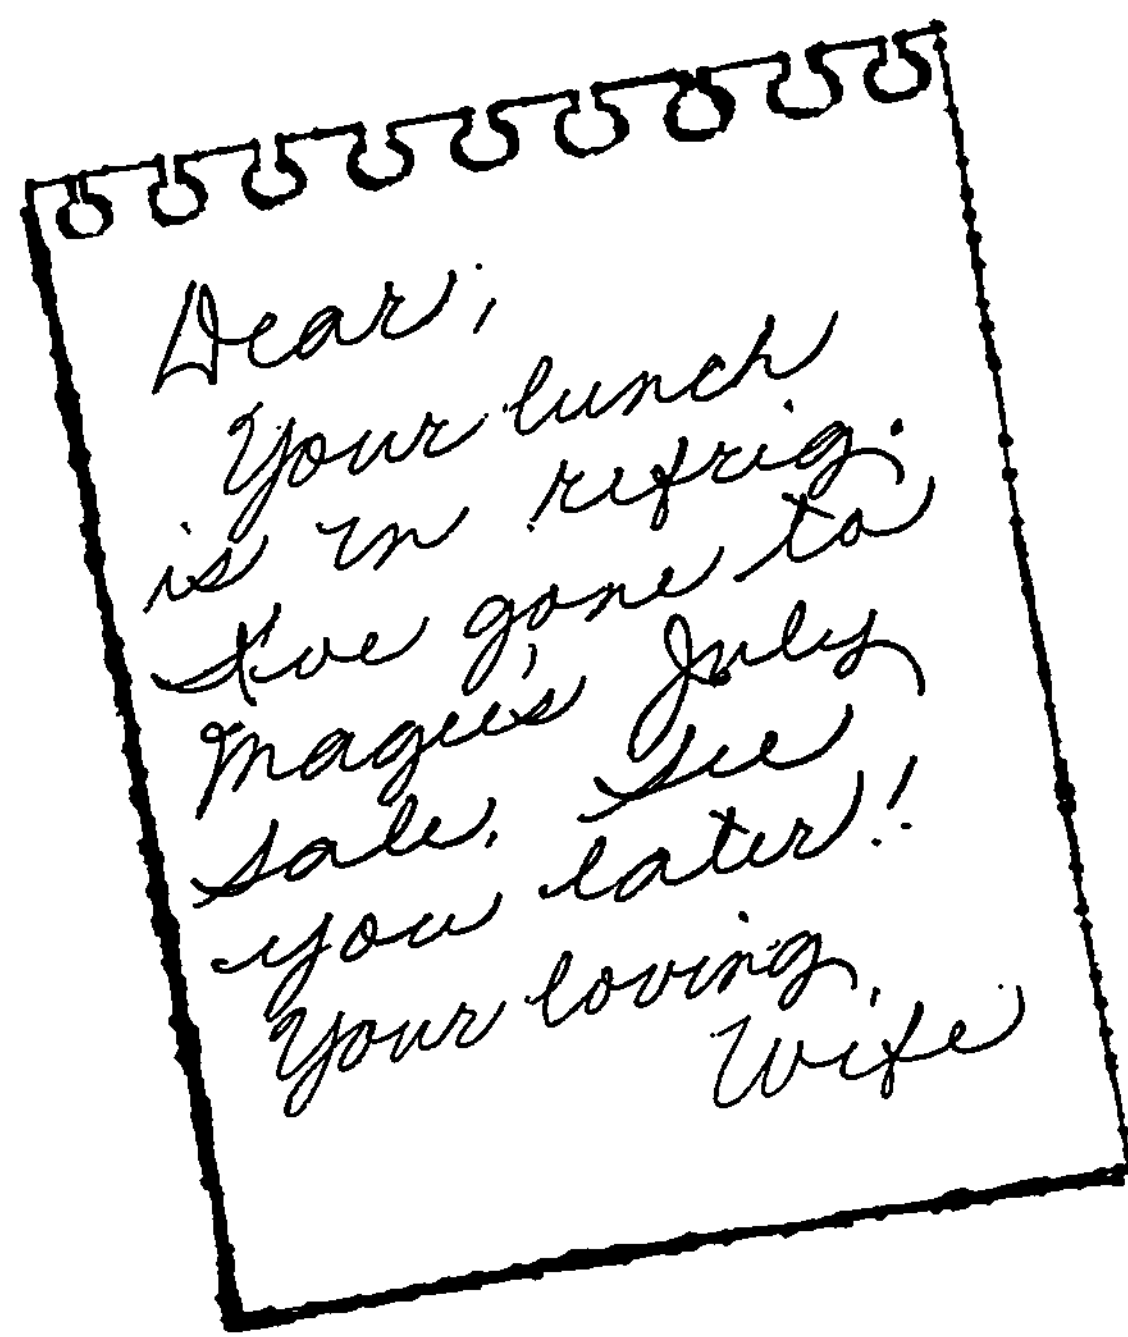 Dear;
Your lunch
is in refrig.
I've gone to
Magee's July
Sale. See
you later!
Your loving,
Wife